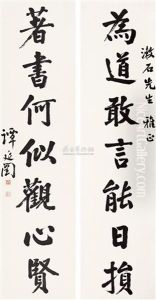 為道敢言能日損
漱石先生 雅正
著書何似觀心賢
譚延闓